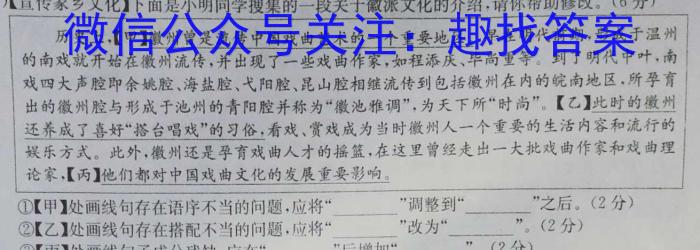 【宣传家乡文化】下面是小明同学搜集的一段关于徽派文化的介绍,请你帮助修改。(6分)
微信公众号关注:趣找答案
历 【甲】徽州曾是 中国戏曲 术的 重要地 温州
的南戏就开始在徽州流传,并出现了一些戏曲作家,如程添庆、毕高重等。到了明代中叶,南
戏四大声腔即余姚腔、海盐腔、弋阳腔、昆山腔相继流传到包括徽州在内的皖南地区,所孕育
出的徽州腔与形成于池州的青阳腔并称为“徽池雅调”,为天下所“时尚”。【乙】此时的徽州
还养成了喜好“搭台唱戏”的习俗,看戏、赏戏成为当时徽州人一个重要的生活内容和流行的
娱乐方式。此外,徽州还是孕育戏曲人才的摇篮,在这里曾经走出一大批戏曲作家和戏曲理
论家,【丙】他们都对中国戏曲文化的发展重要影响。
①【甲】处画线句存在语序不当的问题,应将“________”调整到“________”之后。(2分)
②【乙】处画线句存在搭配不当的问题,应将“________”改为“________”。(2分)
后增加“ ”。(2分)